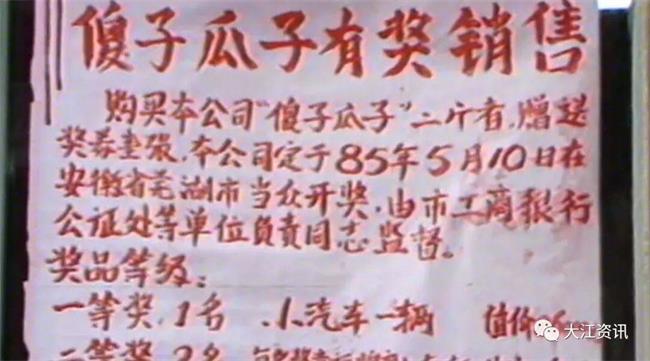 傻子瓜子有奖销售
购买本公司“傻子瓜子”二斤者，赠送
奖券壹張，本公司定于85年5月10日在
安徽省芜湖市当众开奖，由市工商银行
公证处等单位负責同志监督。
奖品等级：
一等奖，1名 小汽车一辆 值价
二等奖 2名
大江资讯